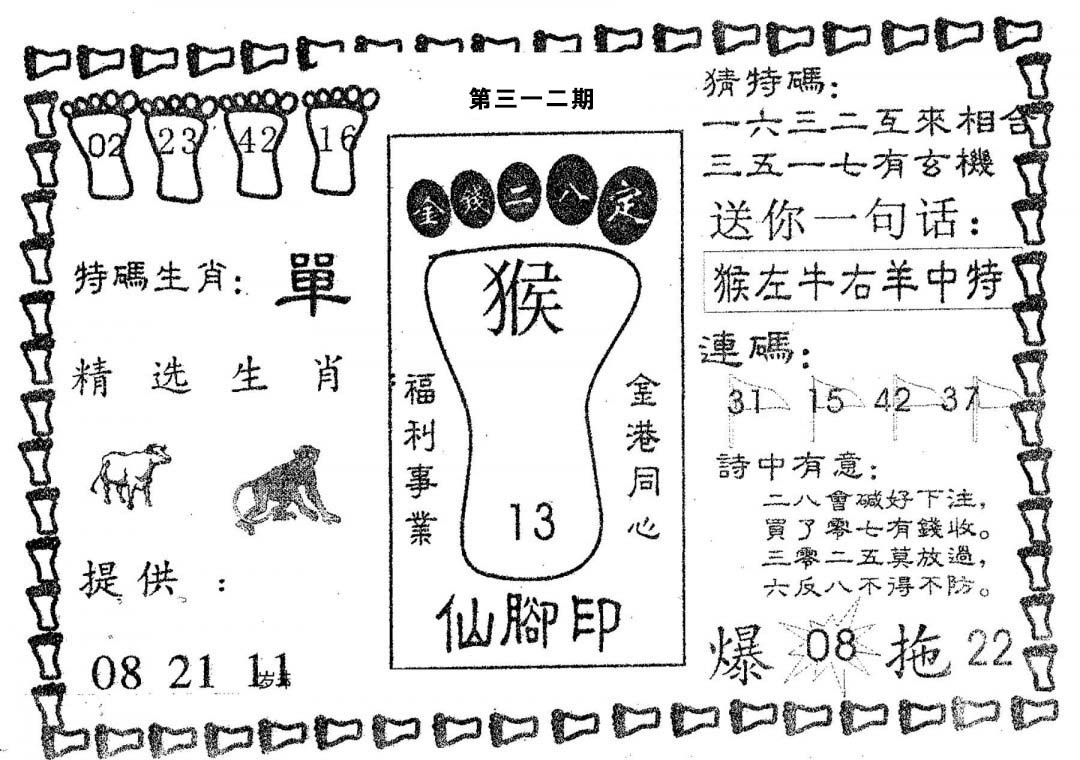 第三一二期
02 23 42 16
特碼生肖：單
精选生肖
提供：
08 21 11
金錢二八定
猴
13
福利事業
金港同心
仙腳印
猜特碼：
一六三二互來相合
三五一七有玄機
送你一句话：
猴左牛右羊中特
連碼：
31 15 42 37
詩中有意：
二八會碱好下注，
買了零七有錢收。
三零二五莫放過，
六反八不得不防。
爆 08 拖 22